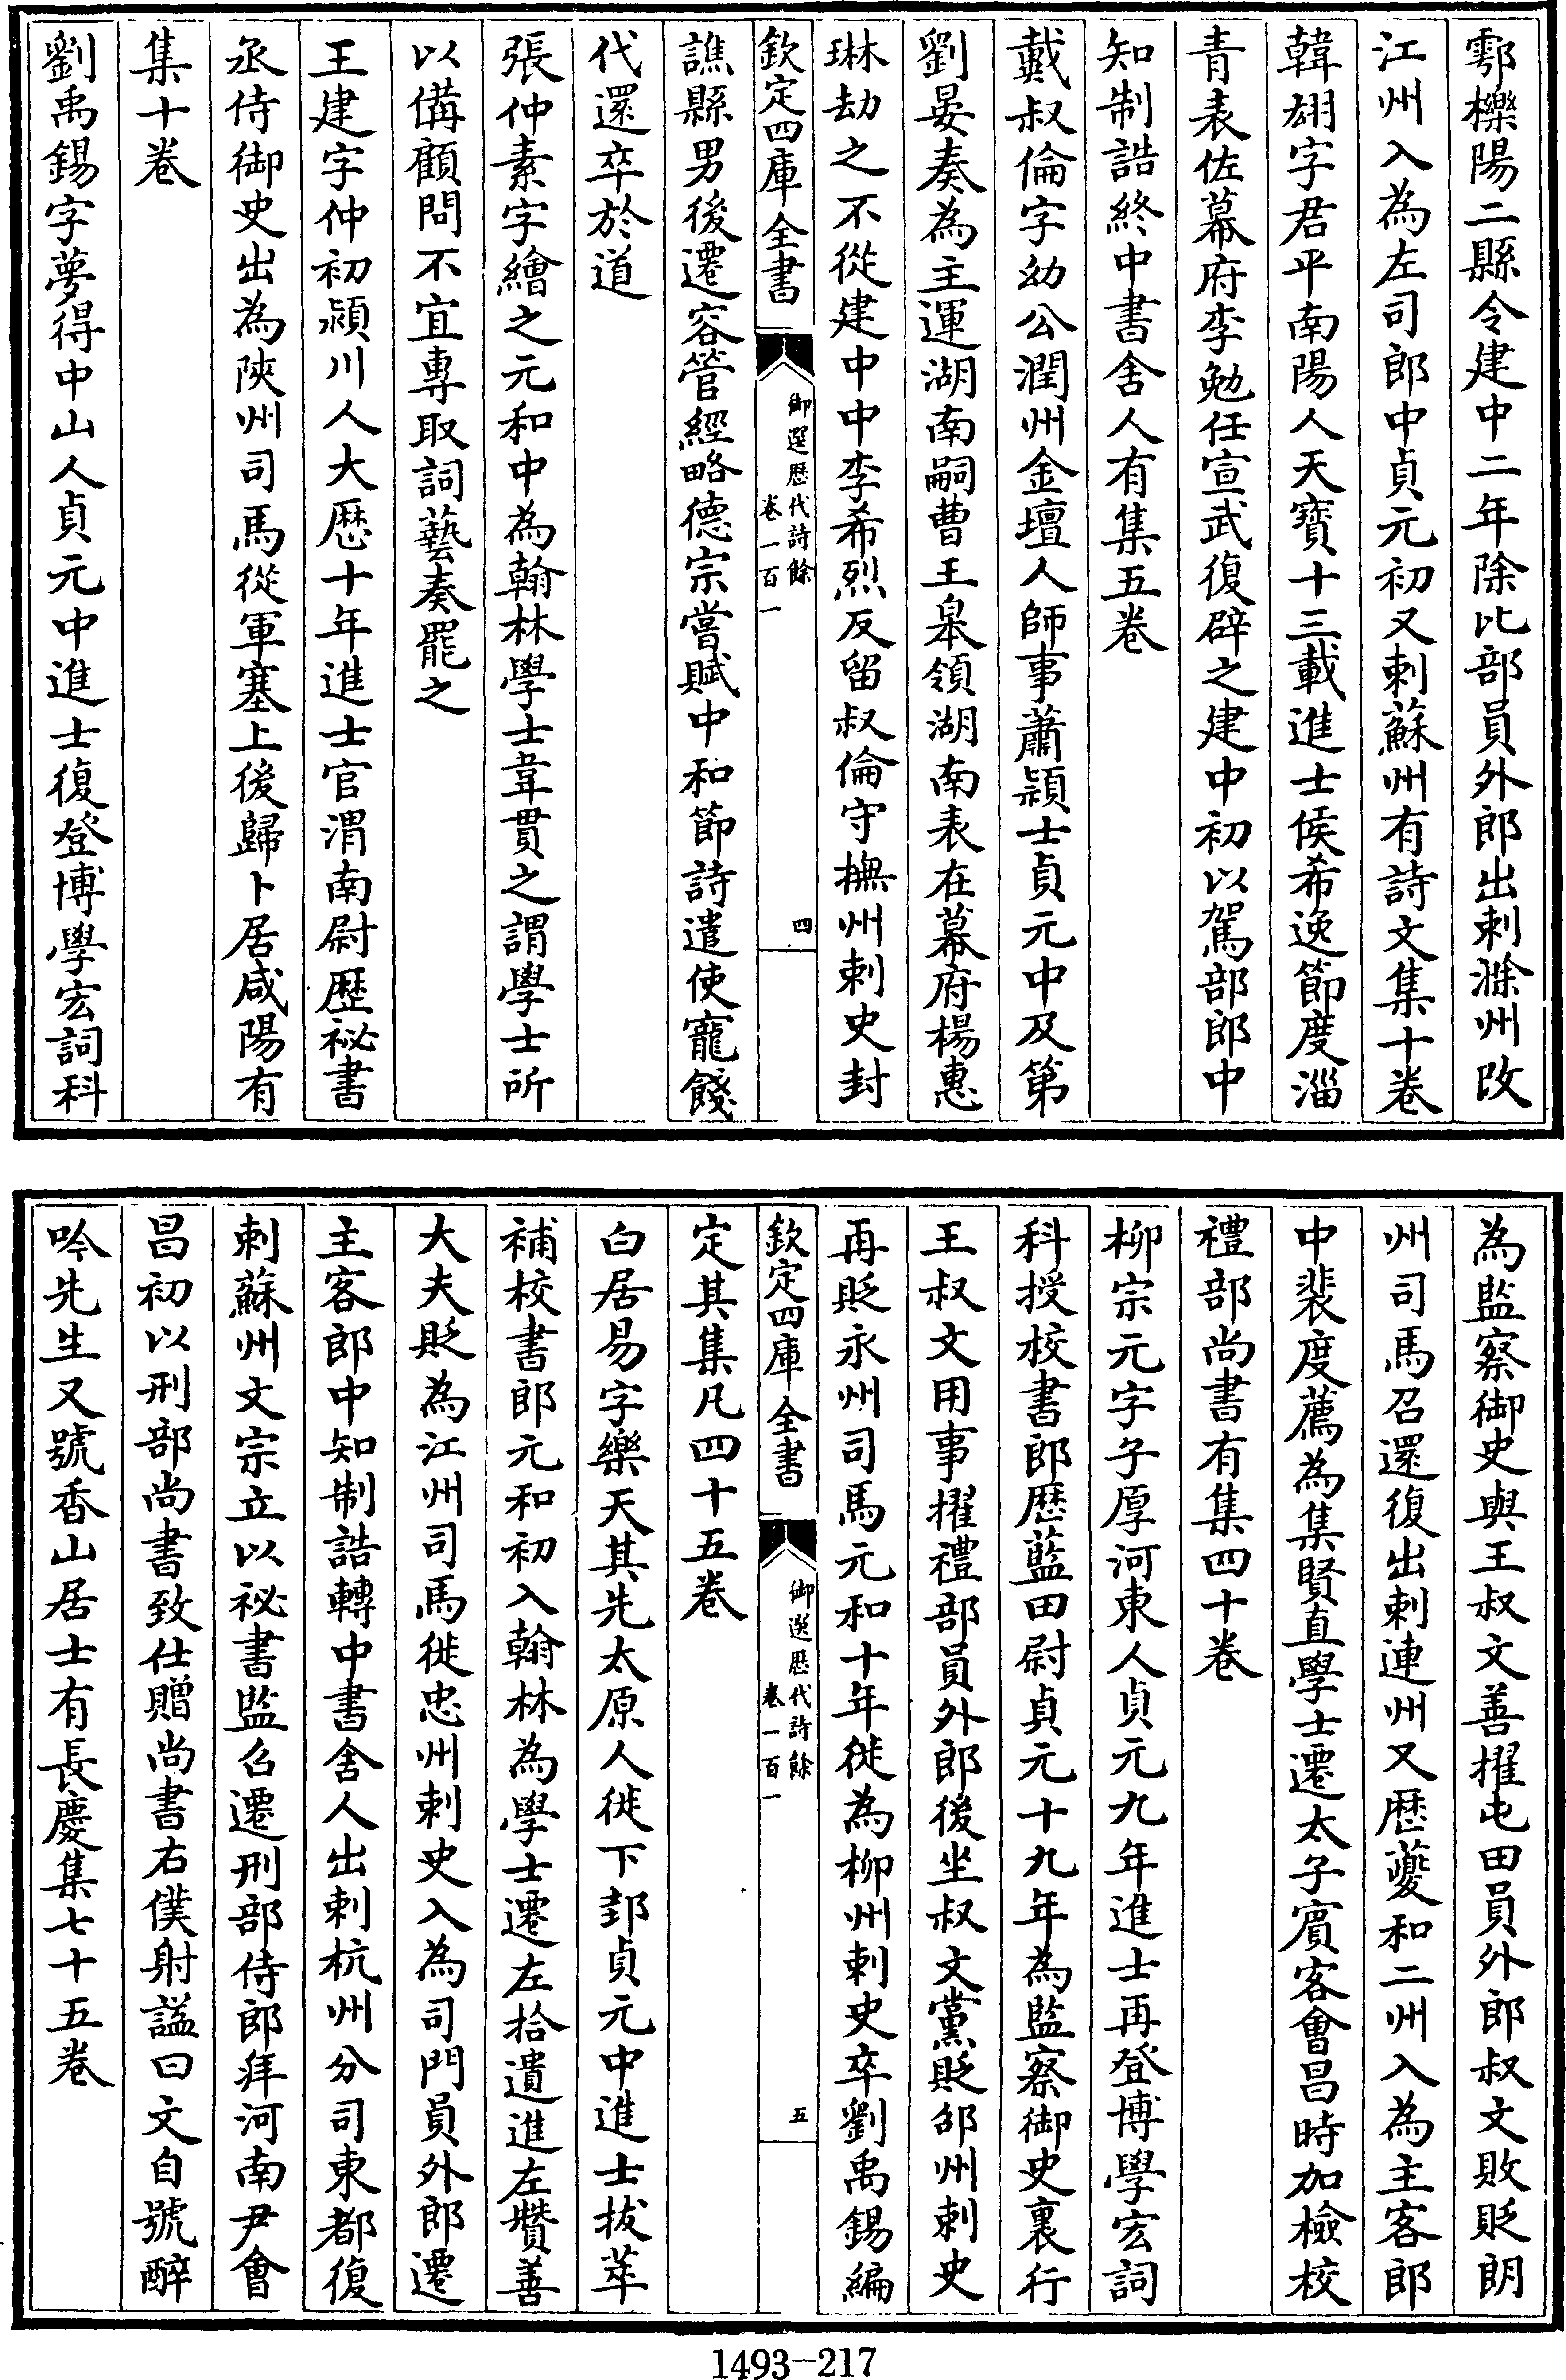 鄠櫟陽二縣令建中二年除比部員外郎出刺滁州改
江州入為左司郎中貞元初又刺蘇州有詩文集十卷
韓翃字君平南陽人天寳十三載進士侯希逸節度淄
青表佐幕府李勉任宣武復辟之建中初以駕部郎中
知制誥終中書舍人有集五卷
戴叔倫字幼公潤州金壇人師事蕭頴士貞元中及第
劉晏奏為主運湖南嗣曹王臯領湖南表在幕府楊惠
琳劫之不從建中中李希烈反留叔倫守撫州刺史封
欽定四庫全書
御選歴代詩餘
卷一百一
四
譙縣男後遷容管經略德宗嘗賦中和節詩遣使寵餞
代還卒於道
張仲素字繪之元和中為翰林學士韋貫之謂學士所
以備顧問不宜專取詞藝奏罷之
王建字仲初潁川人大歴十年進士官渭南尉歴祕書
丞侍御史出為陜州司馬從軍塞上後歸卜居咸陽有
集十卷
劉禹錫字夢得中山人貞元中進士復登博學宏詞科
為監察御史與王叔文善擢屯田員外郎叔文敗貶朗
州司馬召還復出刺連州又歴夔和二州入為主客郎
中裴度薦為集賢直學士遷太子賓客會昌時加檢校
禮部尚書有集四十卷
柳宗元字子厚河東人貞元九年進士再登博學宏詞
科授校書郎歴藍田尉貞元十九年為監察御史裏行
王叔文用事擢禮部員外郎後坐叔文黨貶邵州刺史
再貶永州司馬元和十年徙為柳州刺史卒劉禹錫編
欽定四庫全書
御選歴代詩餘
卷一百一
五
定其集凡四十五卷
白居易字樂天其先太原人徙下邽貞元中進士拔萃
補校書郎元和初入翰林為學士遷左拾遺進左贊善
大夫貶為江州司馬徙忠州刺史入為司門員外郎遷
主客郎中知制誥轉中書舍人出刺杭州分司東都復
刺蘇州文宗立以祕書監召遷刑部侍郎拜河南尹會
昌初以刑部尚書致仕贈尚書右僕射諡曰文自號醉
吟先生又號香山居士有長慶集七十五卷
1493-217